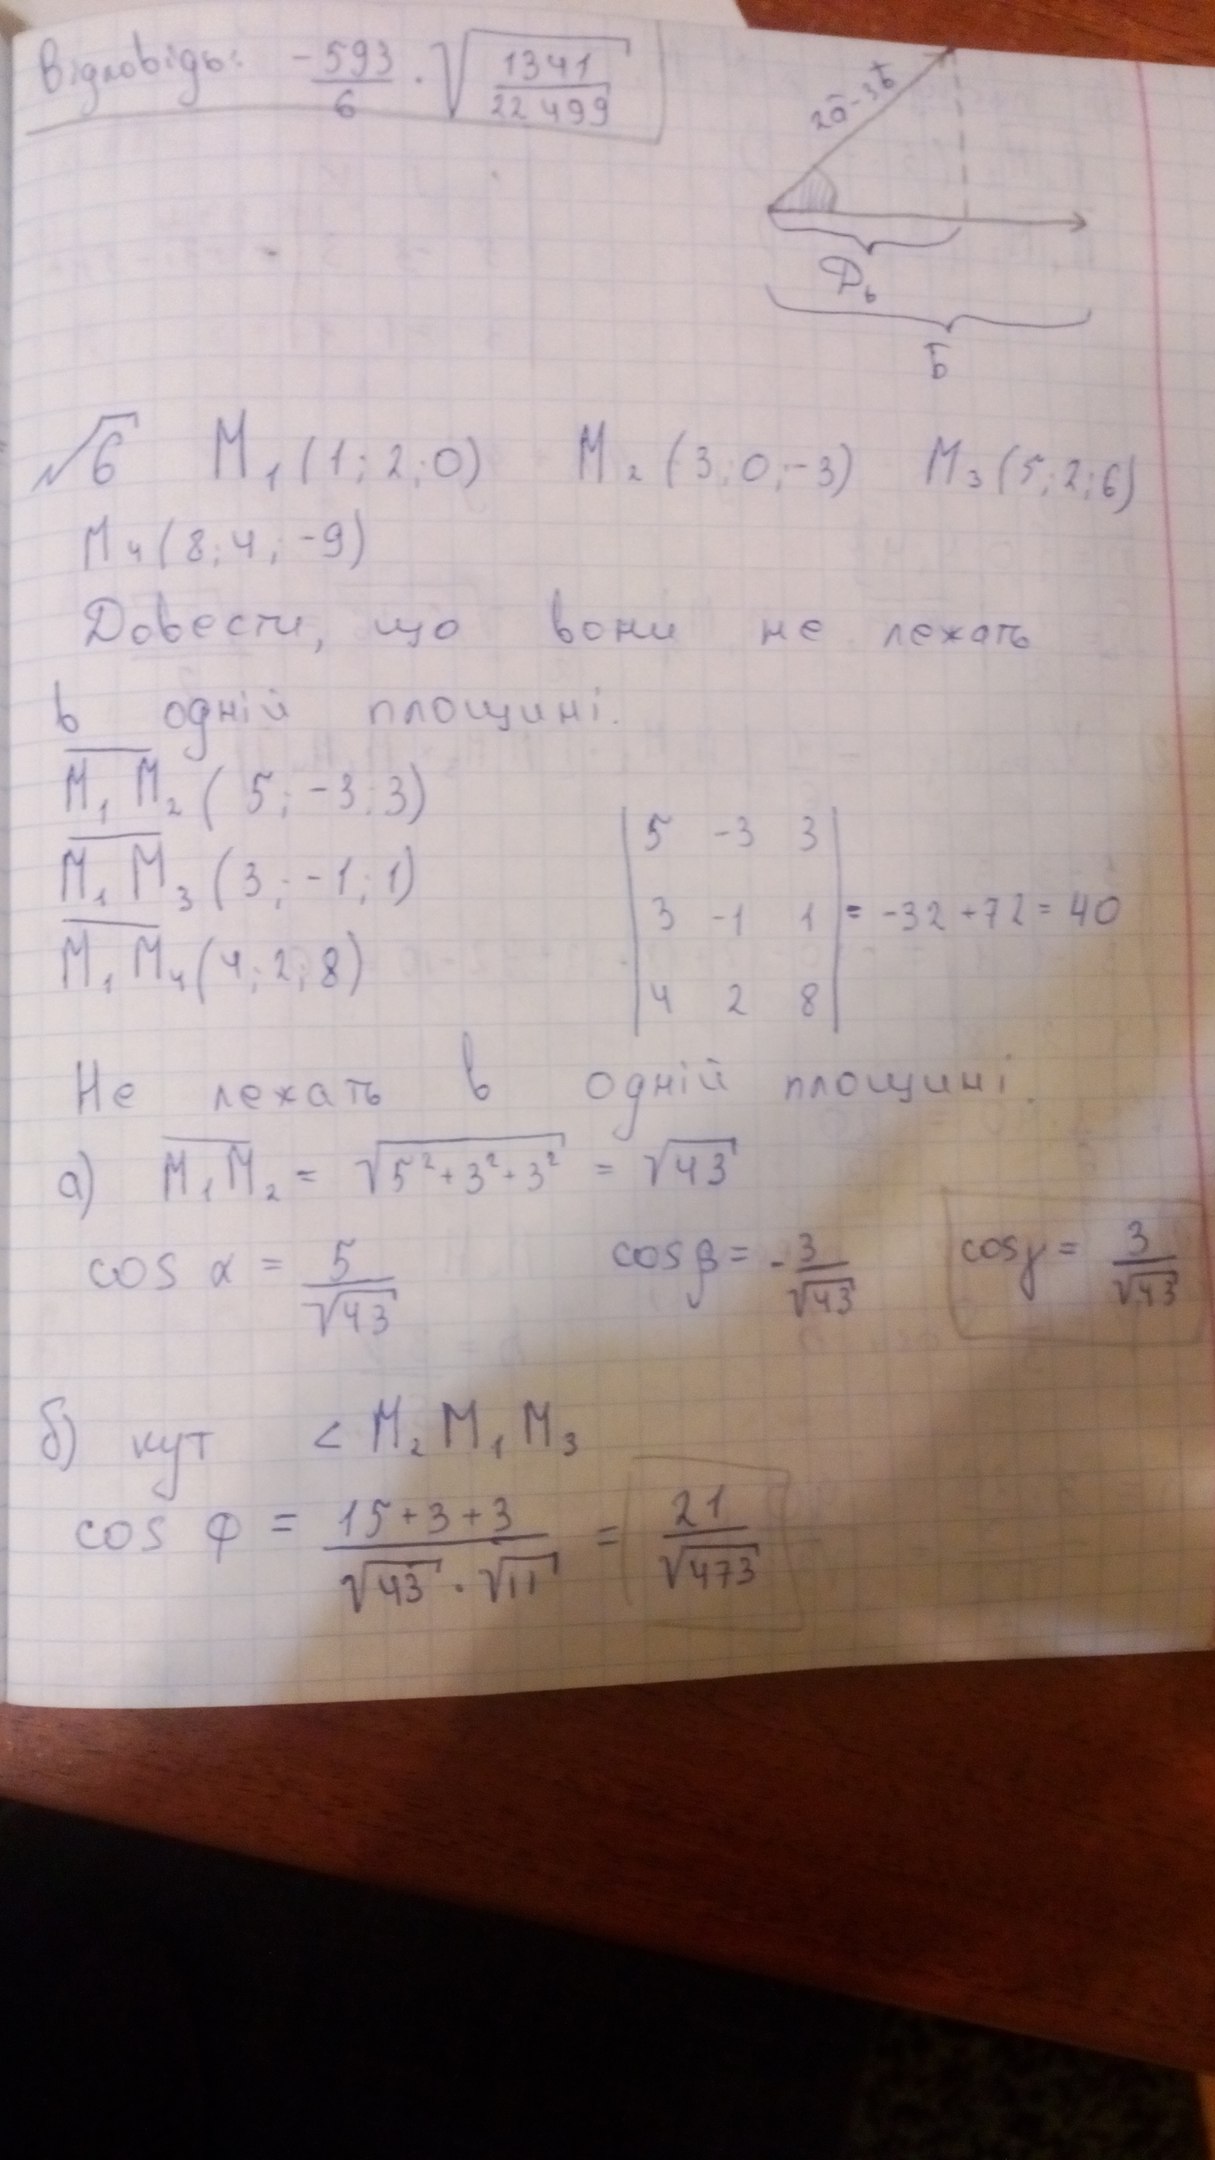 Відповідь: -593/6 · √(1341/22499)
2ā-3b̄
Dь
b̄
√6 M₁(1; 2; 0) M₂(3; 0; -3) M₃(5; 2; 6)
M₄(8; 4; -9)
Довести, що вони не лежать
в одній площині.
M₁M₂(5; -3; 3)
M₁M₃(3; -1; 1)
M₁M₄(4; 2; 8)
|5 -3 3|
|3 -1 1| = -32 + 72 = 40
|4 2 8|
Не лежать в одній площині.
а) M₁M₂ = √(5² + 3² + 3²) = √43
cos α = 5/√43 cos β = -3/√43 cos γ = 3/√43
б) кут < M₂M₁M₃
cos φ = (15 + 3 + 3)/(√43 · √11) = 21/√473